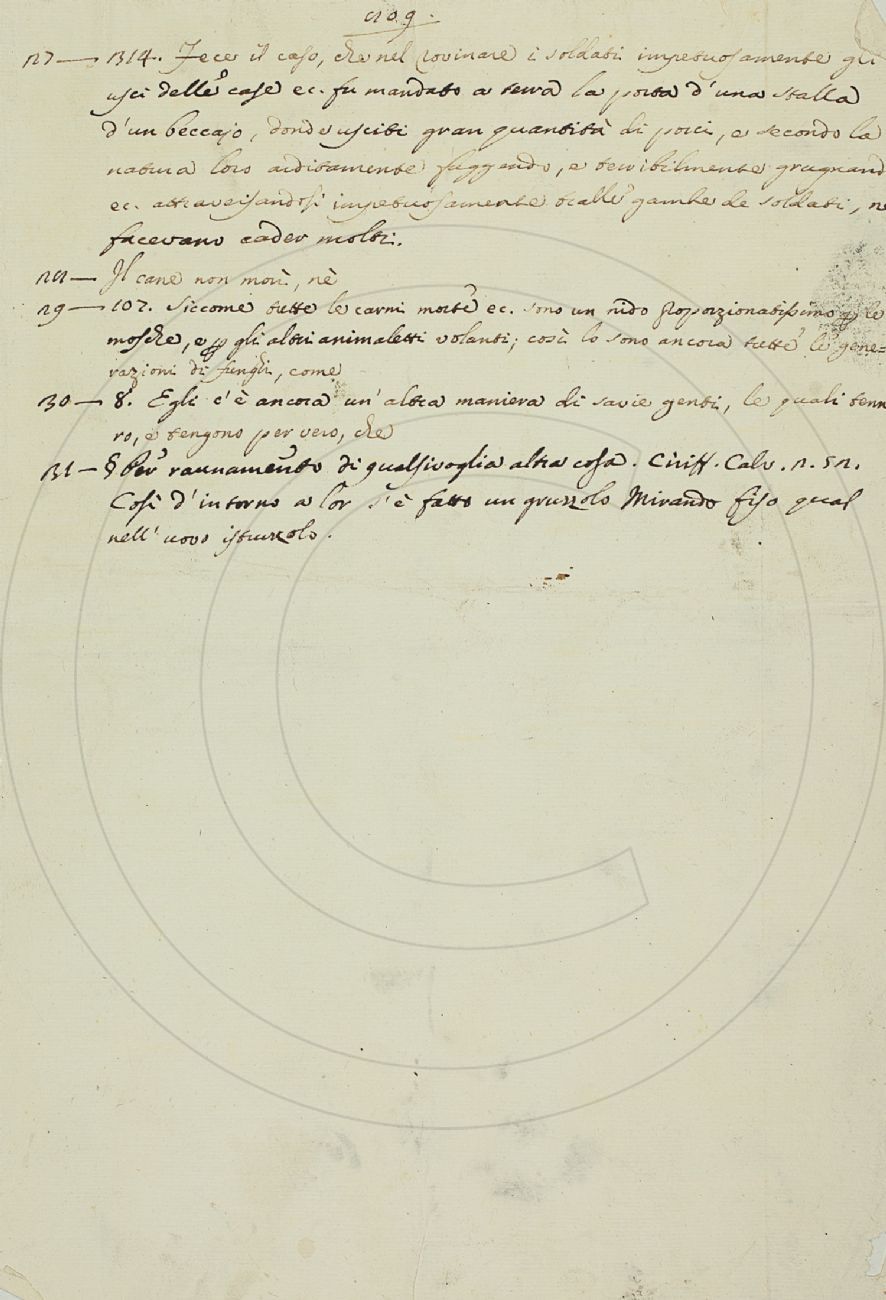 209.
27 — 1314. Fece il caso, che nel rovinare i soldati impetuosamente gli
usci delle case ec. fu mandato a terra la porta d'una stalla
d'un beccajo, donde usciti gran quantità di porci, e secondo la
natura loro arditamente fuggendo, e terribilmente grugnand
ec. attraversandosi impetuosamente tralle gambe de soldati, n
facevano cader molti.
28 — Il cane non morì, nè
29 — 107. Siccome tutte le carni morte ec. sono un nido proporzionatissimo p le
mosche, e p gli altri animaletti volanti; così lo sono ancora tutte le gene=
razioni di funghi, come
30 — 8. Egli c'è ancora un'altra maniera di savie genti, le quali tenn
ro, e tengono per vero, che
31 — § Per raunamento di qualsivoglia altra cosa. Ciriff. Calv. 2. 52.
Così d'intorno a lor s'è fatto un gruzzolo Mirando fiso qual
nell'uovo istruzzolo.